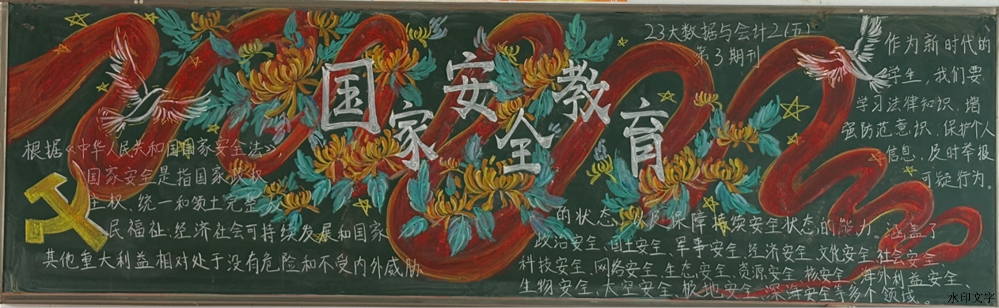 国家安全教育
23大数据与会计2(五)
第3期刊
根据《中华人民共和国国家安全法》,
国家安全是指国家政权
主权、统一和领土完整
民福祉、经济社会可持续发展和国家
其他重大利益相对处于没有危险和不受内外威胁
的状态,以及保障持续安全状态的能力。涵盖了
政治安全、国土安全、军事安全、经济安全、文化安全、社会安全
科技安全、网络安全、生态安全、资源安全、核安全、海外利益安全
生物安全、太空安全、极地安全、深海安全等多个领域。
作为新时代的
学生,我们要
学习法律知识,增
强防范意识,保护个人
信息,及时举报
可疑行为。
水印文字